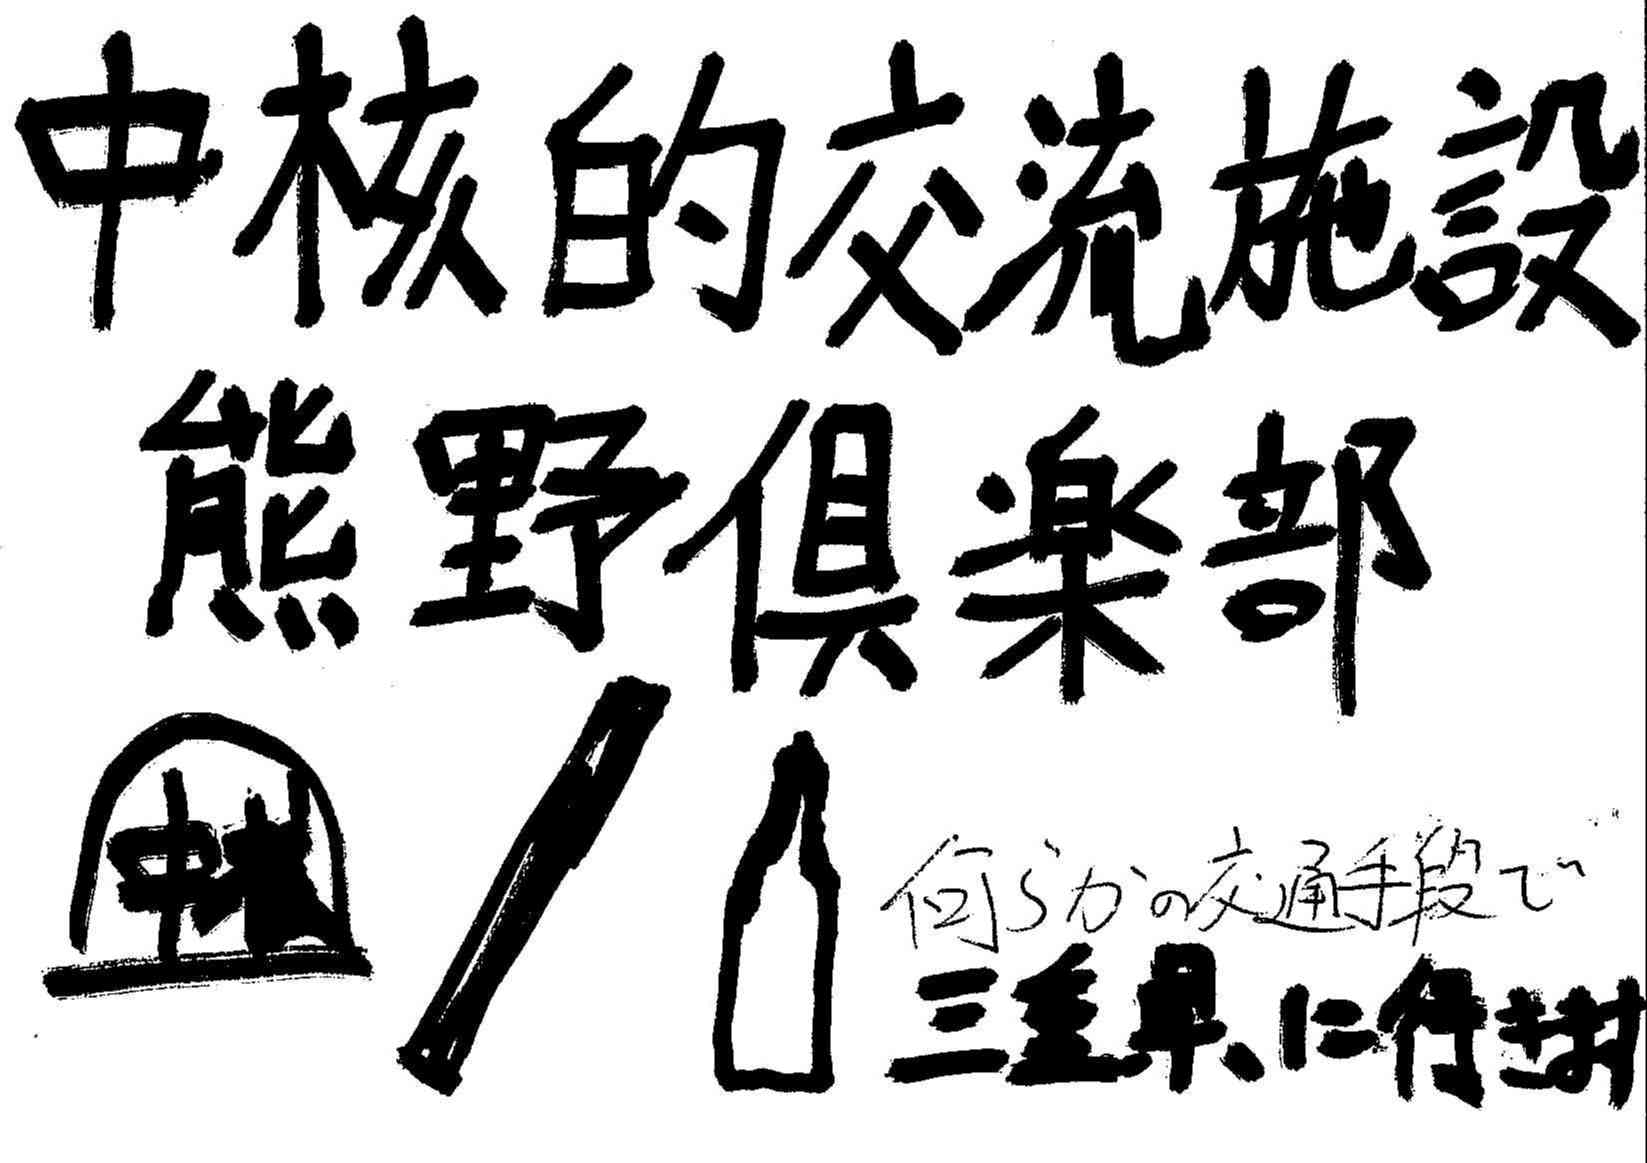 中核的交流施設
熊野倶楽部
中核
何らかの交通手段で
三重県に行きます